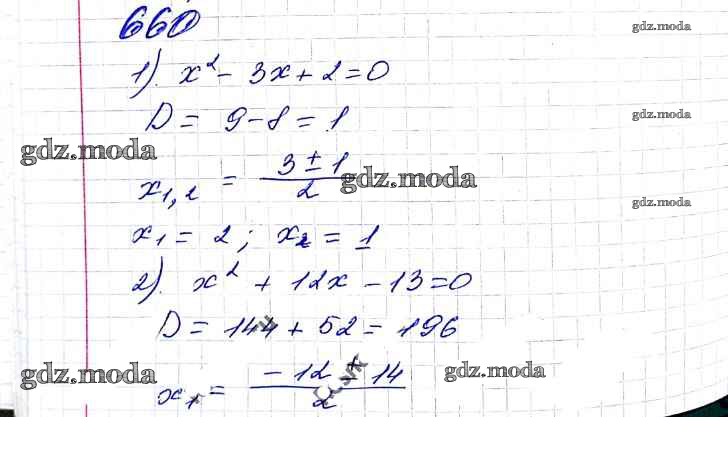 660
gdz.moda
1). x² - 3x + 2 = 0
D = 9 - 8 = 1
gdz.moda
gdz.moda
x₁,₂ = (3 ± 1)/2
gdz.moda
gdz.moda
x₁ = 2; x₂ = 1
2). x² + 12x - 13 = 0
D = 144 + 52 = 196
gdz.moda
gdz.moda
x₁ = (-12 ± 14)/2